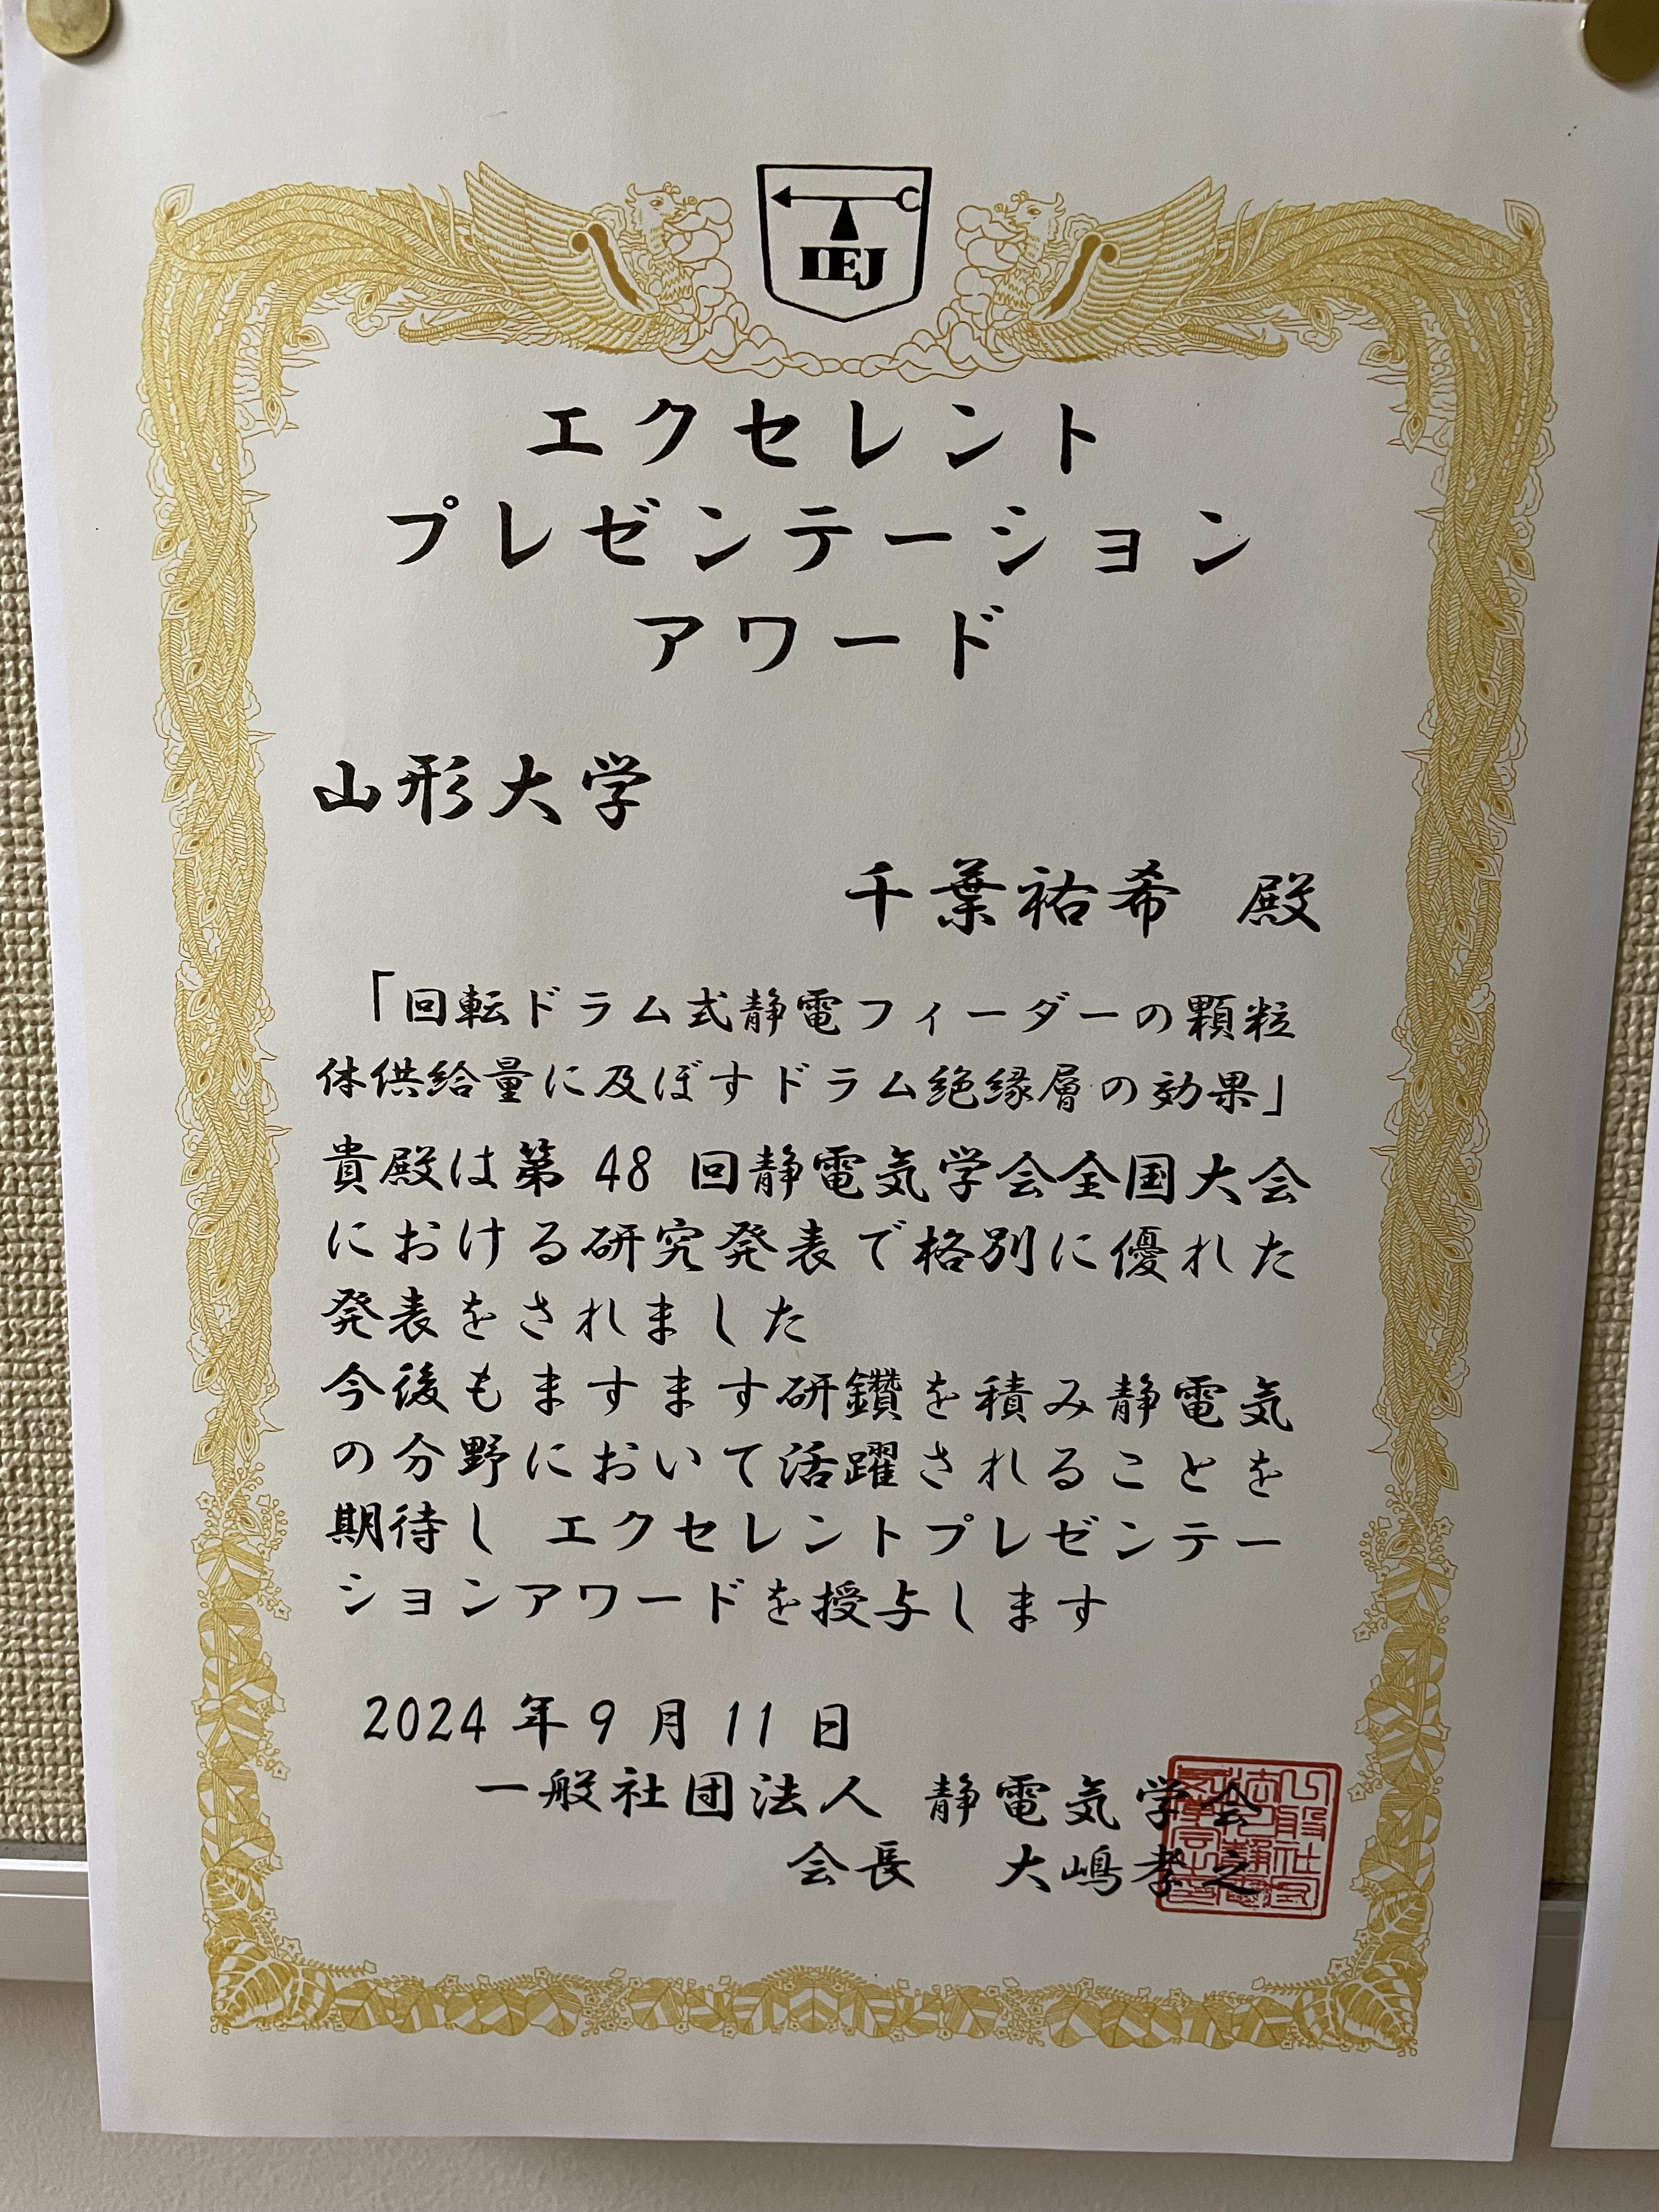 IEJ
エクセレント
プレゼンテーション
アワード
山形大学
千葉祐希 殿
「回転ドラム式静電フィーダーの顆粒
体供給量に及ぼすドラム絶縁層の効果」
貴殿は第 48 回静電気学会全国大会
における研究発表で格別に優れた
発表をされました
今後もますます研鑽を積み静電気
の分野において活躍されることを
期待し エクセレントプレゼンテー
ションアワードを授与します
2024 年 9 月 11 日
一般社団法人 静電気学会
会長 大嶋孝之